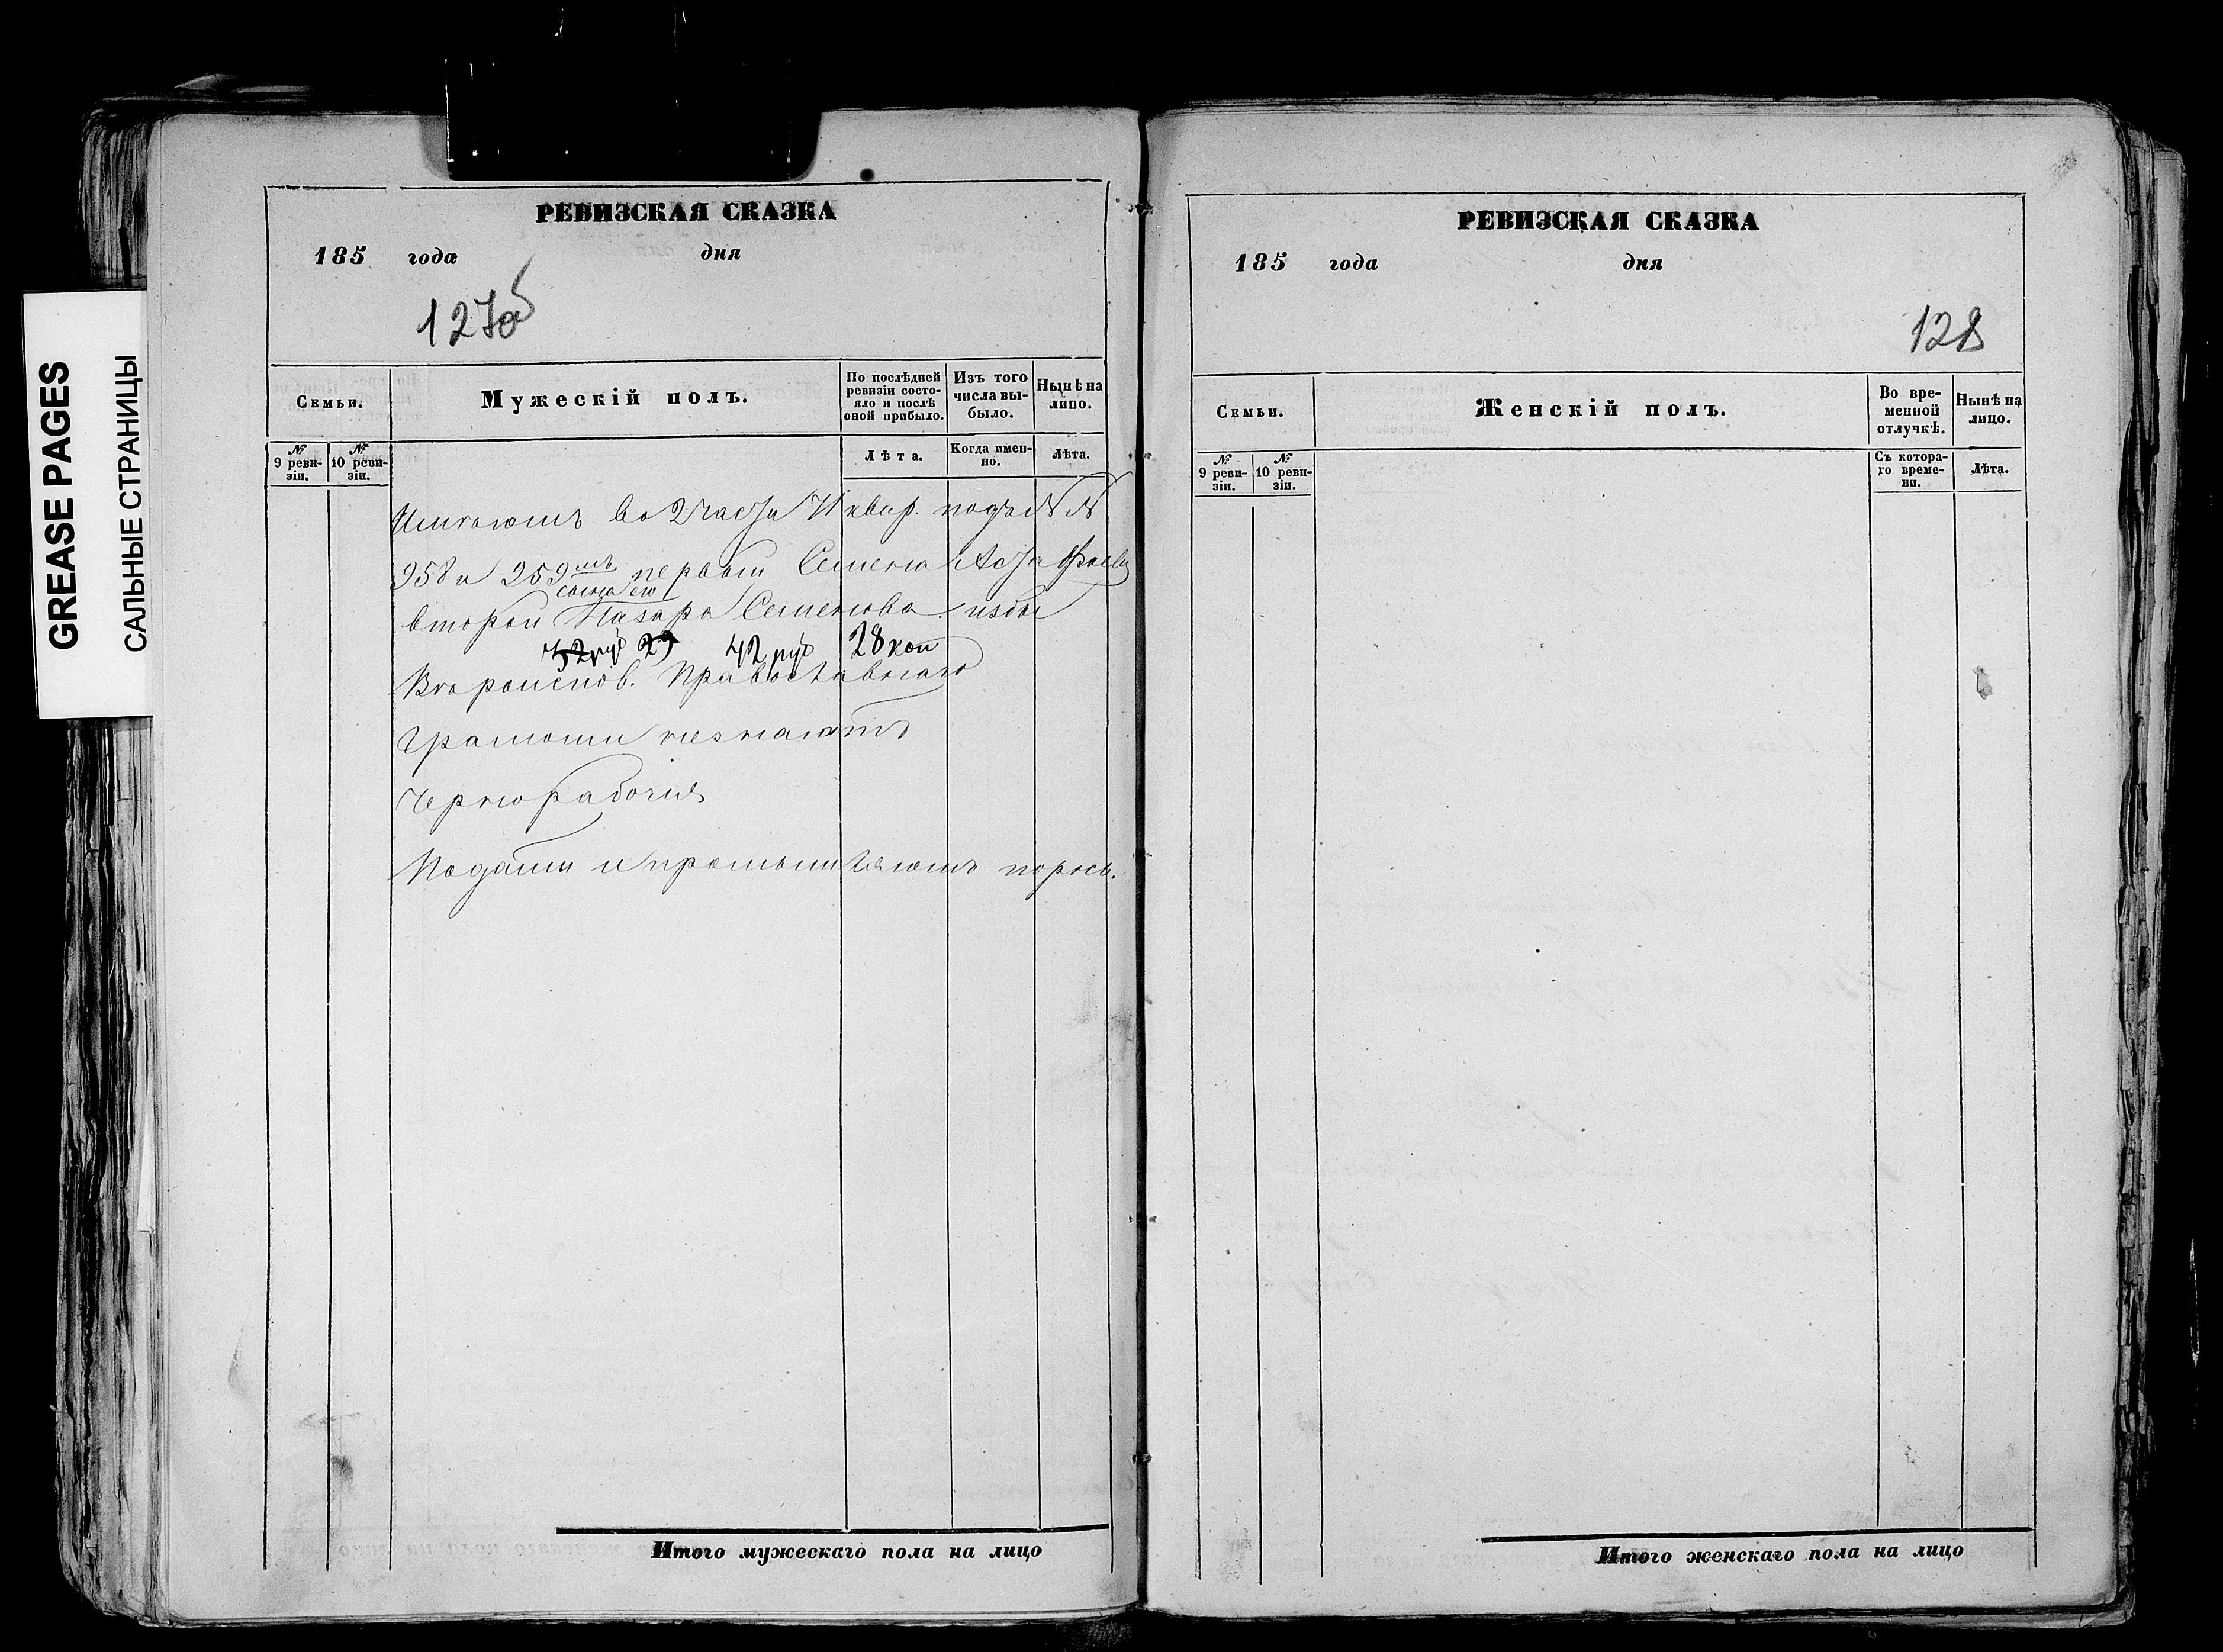 GREASE PAGES
САЛЬНЫЕ СТРАНИЦЫ
РЕВИЗСКАЯ СКАЗКА
185 года дня
127об
Семьи.
Мужескій полъ.
По послѣдней ревизіи состояло и послѣ оной прибыло.
Изъ того числа выбыло.
Нынѣ на лицо.
№ 9 ревизіи.
№ 10 ревизіи.
Лѣта.
Когда именно.
Лѣта.
Имѣютъ во 2 части квар. подъ № №
958 и 959мъ первый Семена Астафьева
сына его
второй Назара Семенова избы
32 руб 29 42 руб 28 коп
Вѣроиспов. Православнаго
Грамоты незнаютъ
Чернорабочіе
Подати
РЕВИЗСКАЯ СКАЗКА
185 года дня
128
Семьи.
Женскій полъ.
Во временной отлучкѣ.
Нынѣ на лицо.
№ 9 ревизіи.
№ 10 ревизіи.
Съ котораго времени.
Лѣта.
Итого мужескаго пола на лицо
Итого женскаго пола на лицо